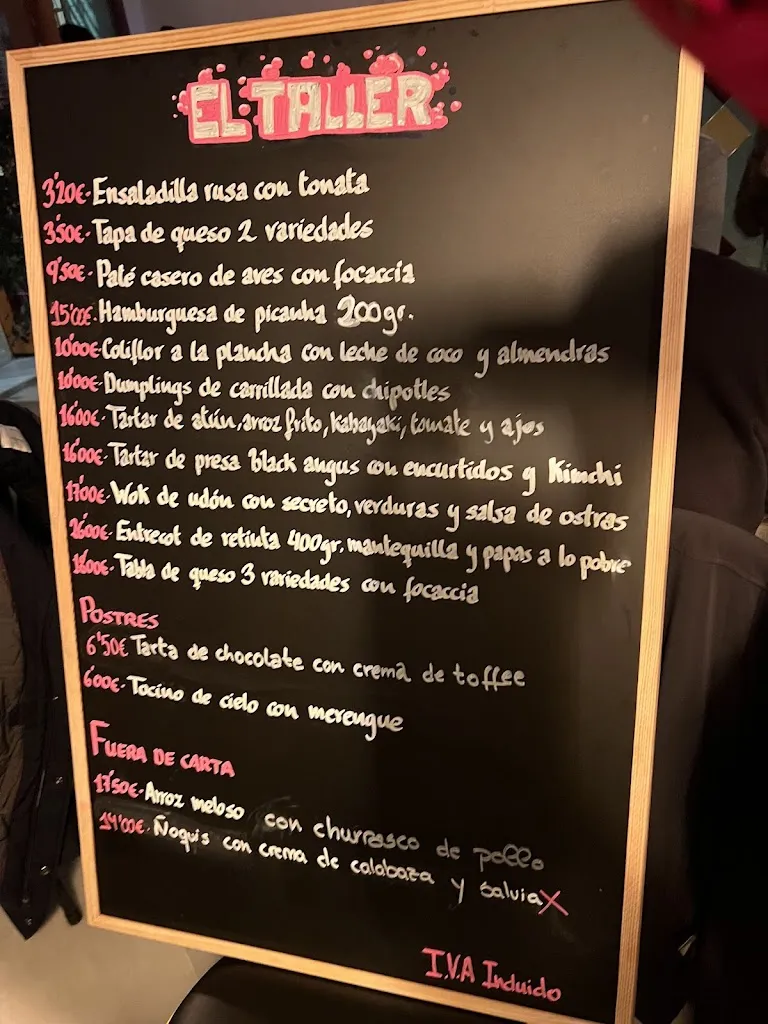 EL TALLER
3'20€-Ensaladilla rusa con tonata
3'50€-Tapa de queso 2 variedades
9'50€-Paté casero de aves con focaccia
15'00€-Hamburguesa de picanha 200gr.
10'00€-Coliflor a la plancha con leche de coco y almendras
10'00€-Dumplings de carrillada con chipotles
16'00€-Tartar de atún, arroz frito, Kabayaki, tomate y ajos
16'00€-Tartar de presa black angus con encurtidos y Kimchi
17'00€-Wok de udón con secreto, verduras y salsa de ostras
26'00€-Entrecot de retinta 400gr. mantequilla y papas a lo pobre
18'00€-Tabla de queso 3 variedades con focaccia
POSTRES
6'50€ Tarta de chocolate con crema de toffee
6'00€-Tocino de cielo con merengue
FUERA DE CARTA
17'50€-Arroz meloso con churrasco de pollo
14'00€-Ñoquis con crema de calabaza y salvia X
I.V.A Incluido